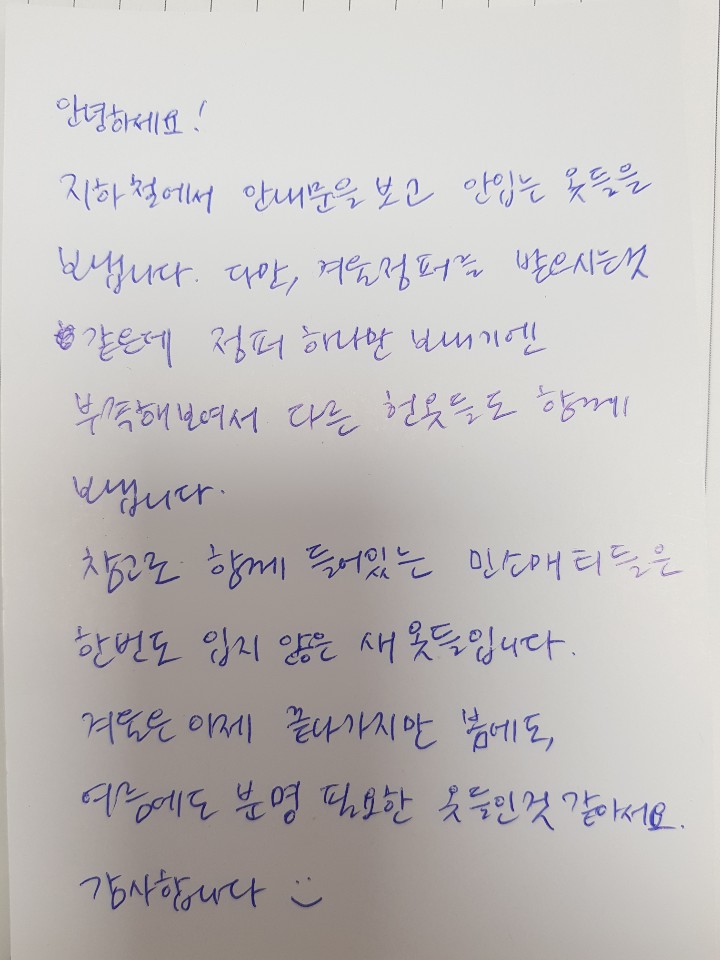 안녕하세요!
지하철에서 안내문을 보고 안입는 옷들을
보냅니다. 다만, 겨울점퍼를 받으시는것
같은데 점퍼 하나만 보내기엔
부족해보여서 다른 헌옷들도 함께
보냅니다.
참고로 함께 들어있는 민소매 티들은
한번도 입지 않은 새 옷들입니다.
겨울은 이제 끝나가지만 봄에도,
여름에도 분명 필요한 옷들인것 같아서요.
감사합니다 :)